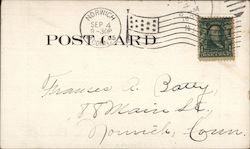 NORWICH
SEP 4
9-30P
CONN.
POST CARD
Frances A. Batty,
88 Main St.,
Norwich, Conn.